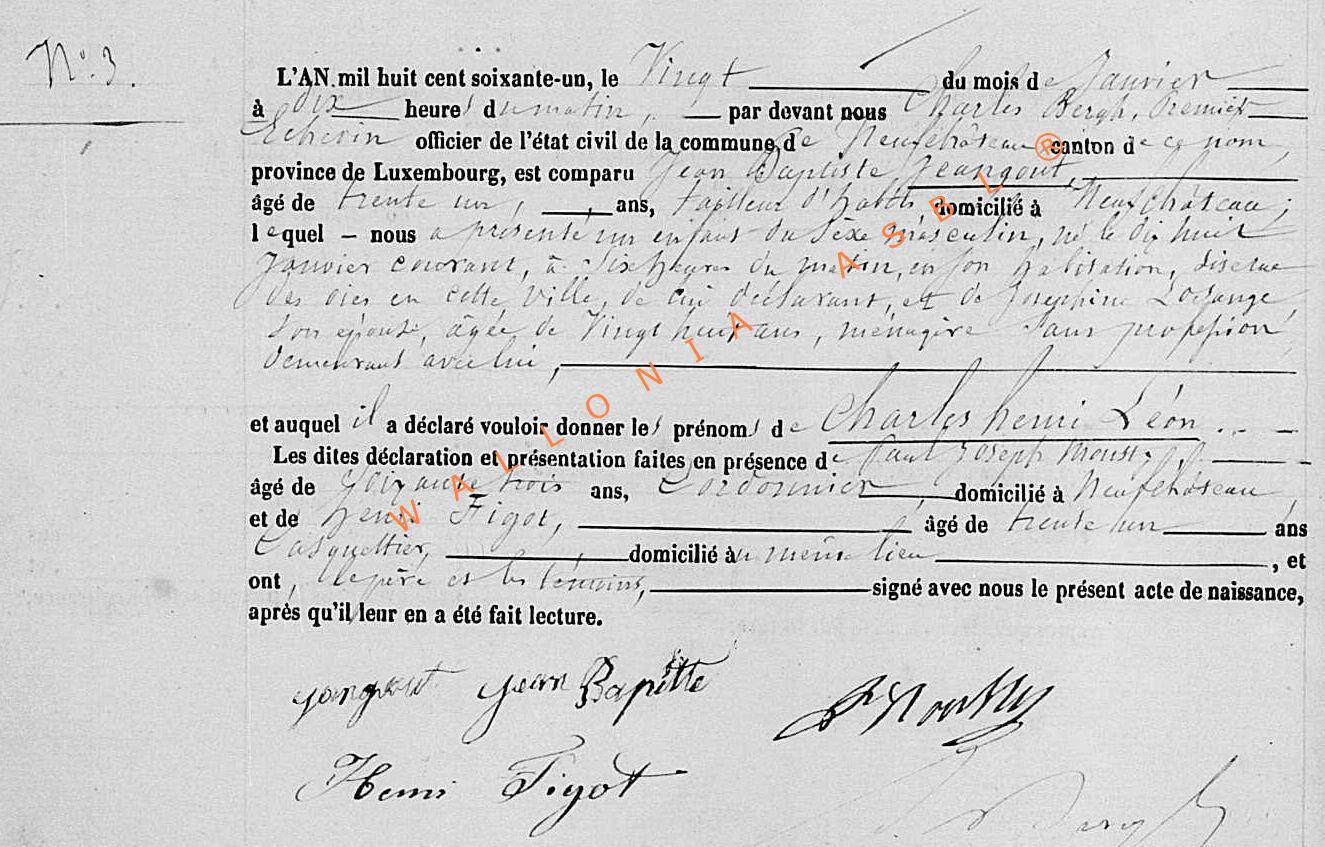 N° 3.
L'AN mil huit cent soixante-un, le Vingt du mois de Janvier
à dix heures du matin, par devant nous Charles Bergh, Premier
Echevin officier de l'état civil de la commune de Neufchâteau canton de ce nom,
province de Luxembourg, est comparu Jean Baptiste Jeangout,
âgé de trente un, ans, tailleur d'habits domicilié à Neufchâteau;
lequel – nous a présenté un enfant du sexe masculin, né le dix huit
Janvier courant, à six heures du matin, en son habitation,
des oies en cette Ville, de lui déclarant, et de Josephine
son épouse, âgée de Vingt ans, ménagère sans profession
demeurant avec lui,
et auquel il a déclaré vouloir donner les prénoms de Charles henri Léon.
Les dites déclaration et présentation faites en présence de Paul Joseph
âgé de soixante trois ans, Cordonnier, domicilié à Neufchâteau,
et de henri Figot, âgé de trente un ans
Casquettier, domicilié au même lieu, et
ont, le père et les témoins, signé avec nous le présent acte de naissance,
après qu'il leur en a été fait lecture.
Jean Baptitte
Henri Figot
WALLONIA ASBL®